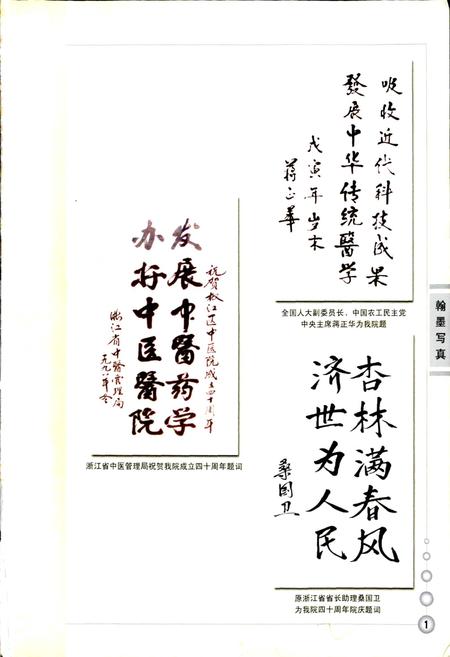 吸收近代科技成果
發展中华传统醫学
戊寅年岁末
蒋正華
全国人大副委员长、中国农工民主党
中央主席蒋正华为我院题
祝贺松江区中医院成立四十周年
发展中醫药学
办好中医醫院
浙江省中醫管理局
一九九八年冬
浙江省中医管理局祝贺我院成立四十周年题词
杏林满春风
济世为人民
桑国卫
原浙江省省长助理桑国卫
为我院四十周年院庆题词
翰墨写真
1